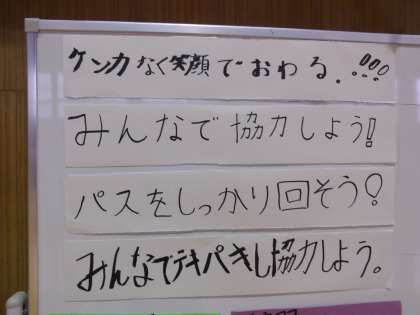 ケンカなく笑顔でおわる.!!!
みんなで協力しよう!
パスをしっかり回そう!
みんなでテキパキし協力しよう。